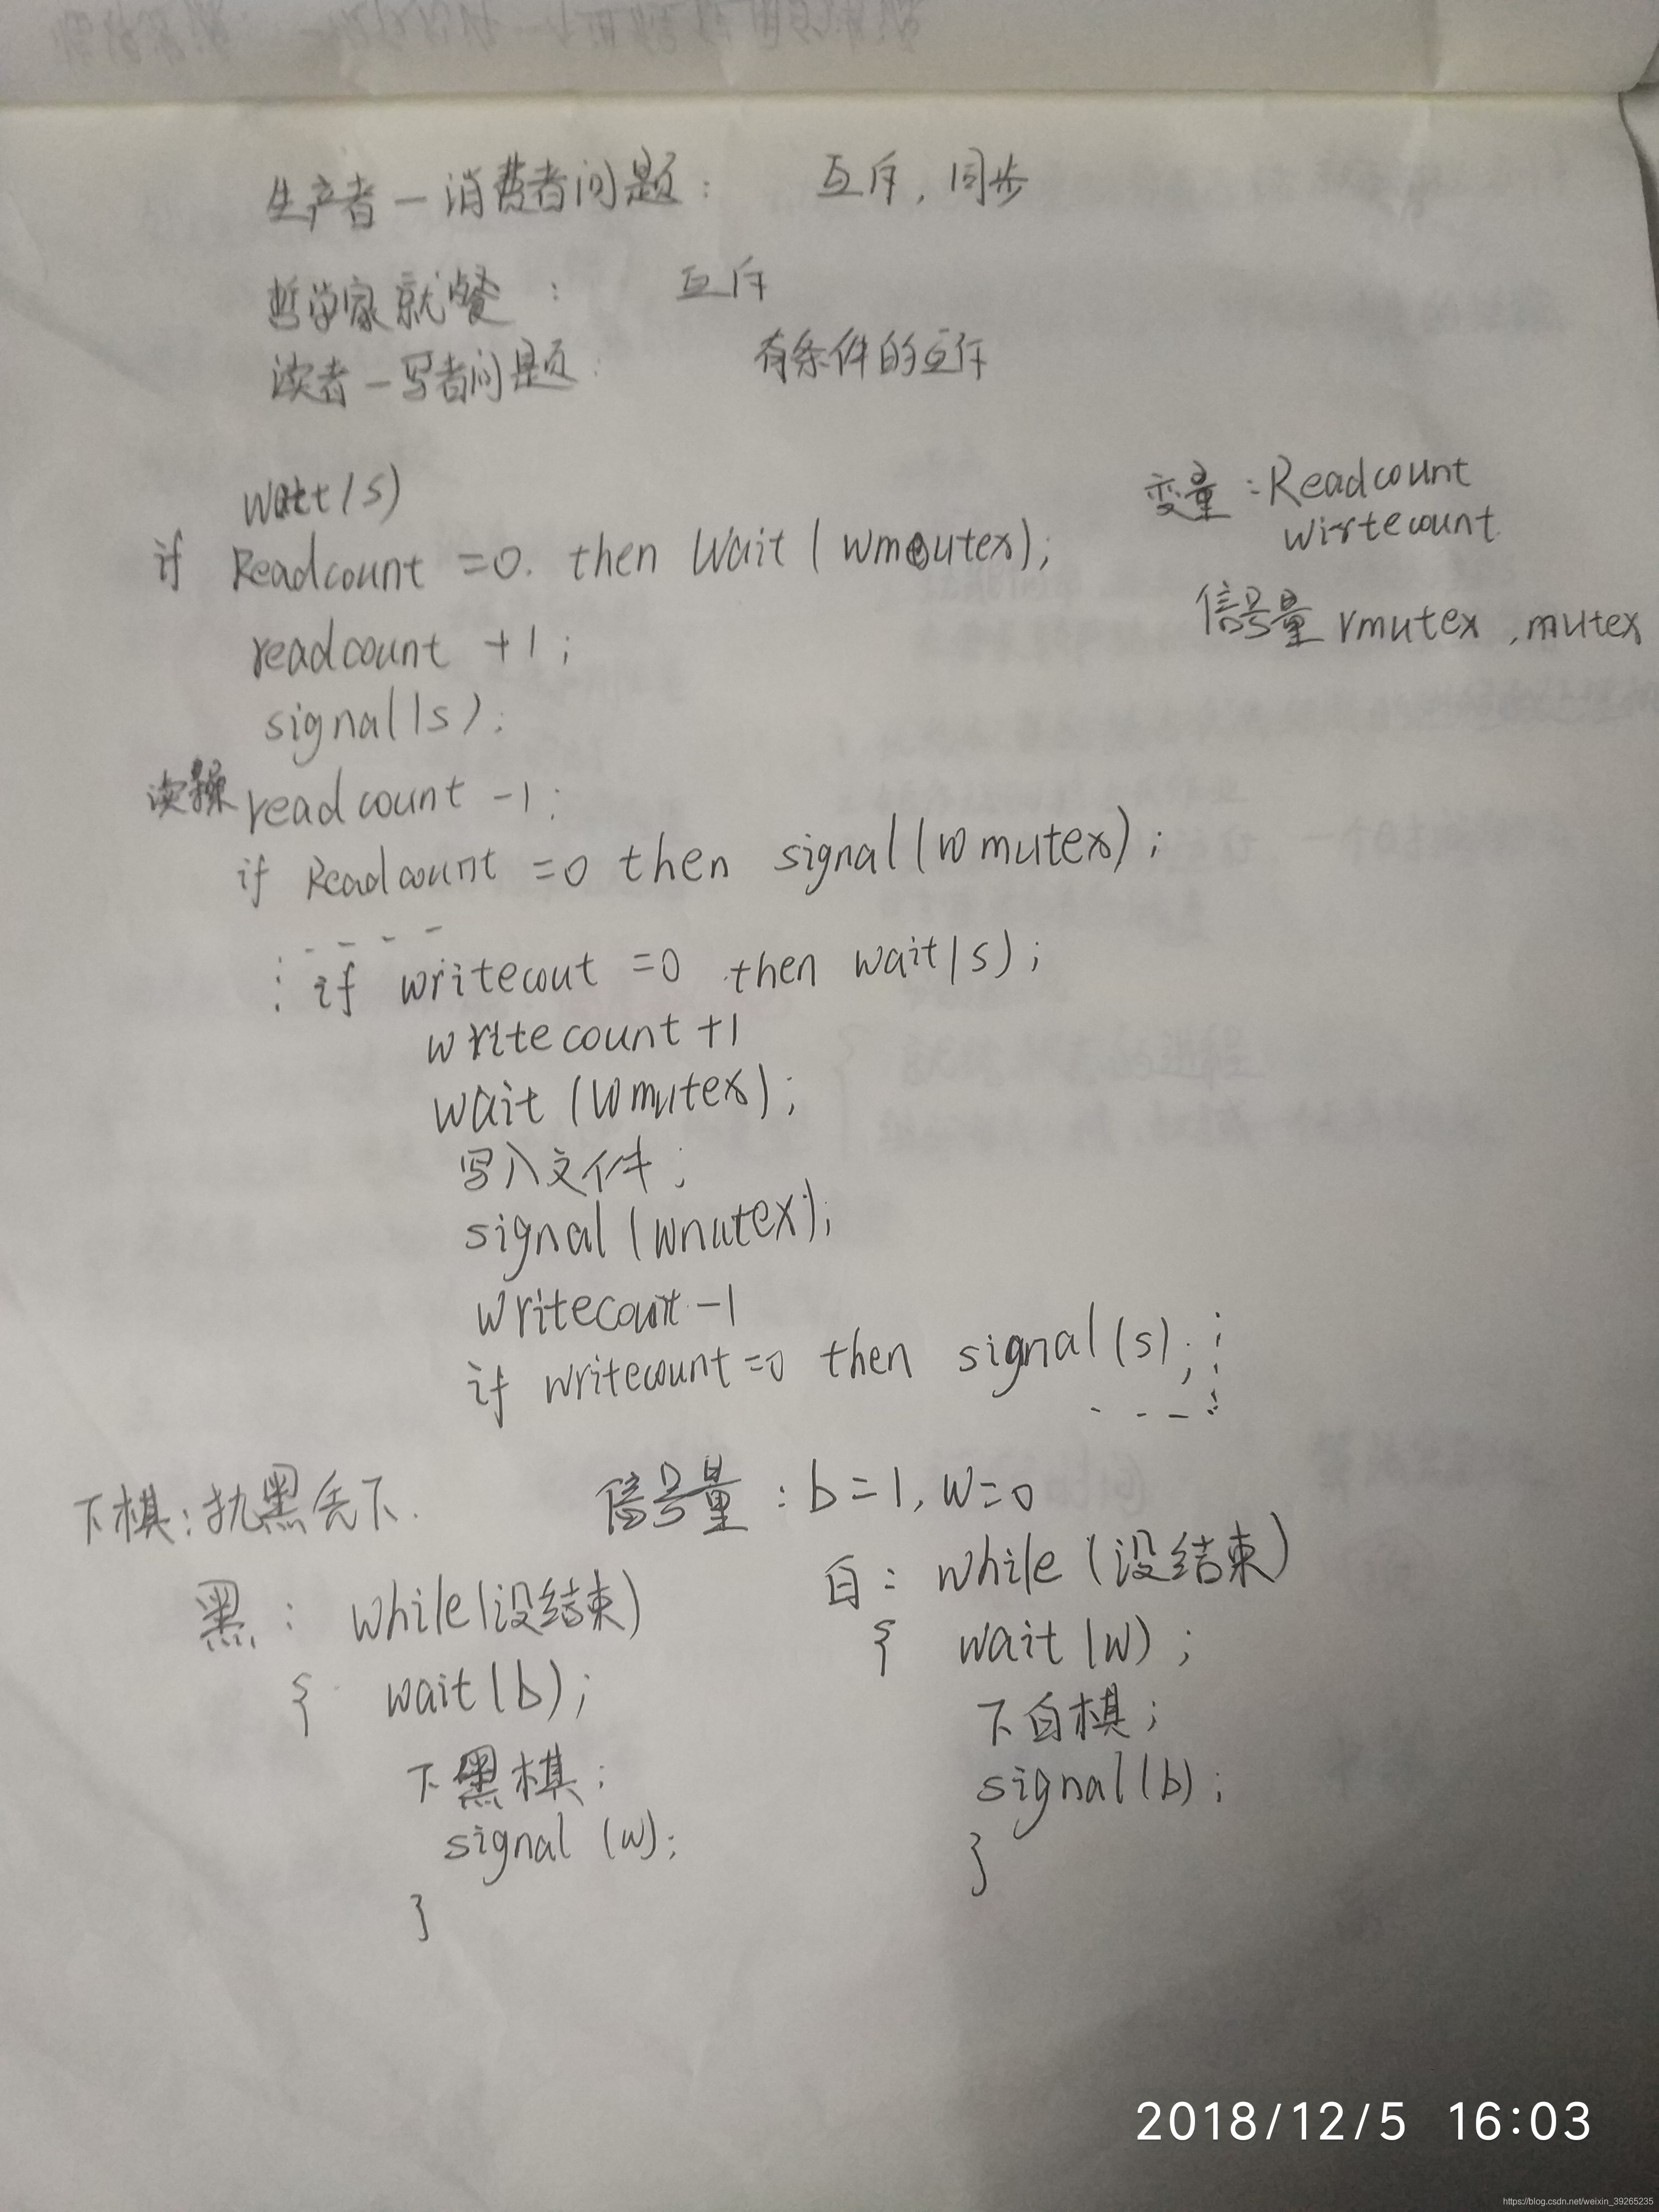 生产者－消费者问题： 互斥，同步
哲学家就餐： 互斥
读者－写者问题： 有条件的互斥
wait(s)
变量：Readcount
wirtecount
if Readcount =0. then Wait(wmoutex);
信号量 rmutex ,mutex
readcount +1;
signal(s);
读操 readcount -1;
if Readcount =0 then signal(wmutex);
if writecout =0 then wait(s);
writecount +1
wait(wmutex);
写入文件；
signal(wnutex);
writecount -1
if writecount=0 then signal(s);
下棋：执黑先下. 信号量：b=1, w=0
黑： while(没结束)
{ wait(b);
下黑棋；
signal(w);
}
白： while(没结束)
{ wait(w);
下白棋；
signal(b);
}
2018/12/5 16:03
https://blog.csdn.net/weixin_39265235